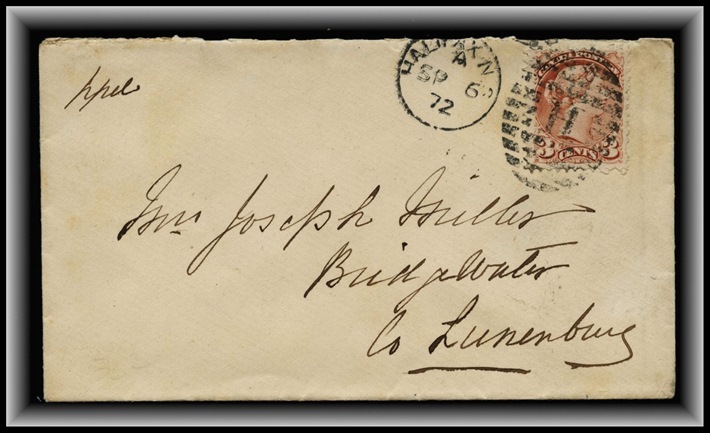 HALIFAX N.S
A
SP 6
72
CANADA POSTAGE
3 CENTS 3
11
Mrs Joseph Miller
Bridgewater
Co Lunenburg